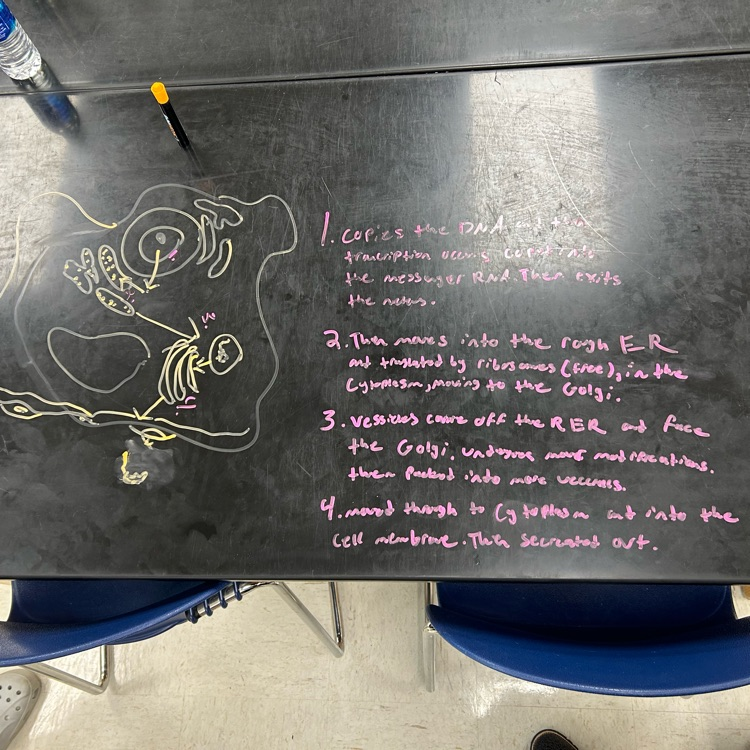 1. copies the DNA and then
trancription occurs copy into
the messenger RNA. Then exits
the
2. Then moves into the rough ER
and translated by ribosomes (free), in the
Cytoplasm, moving to the Golgi.
3. vessicles come off the RER and face
the Golgi. undergoes more modifications.
then Packed into more
4. moved through to Cytoplasm and into the
Cell membrane. Then secreated out.
1
2
3
4